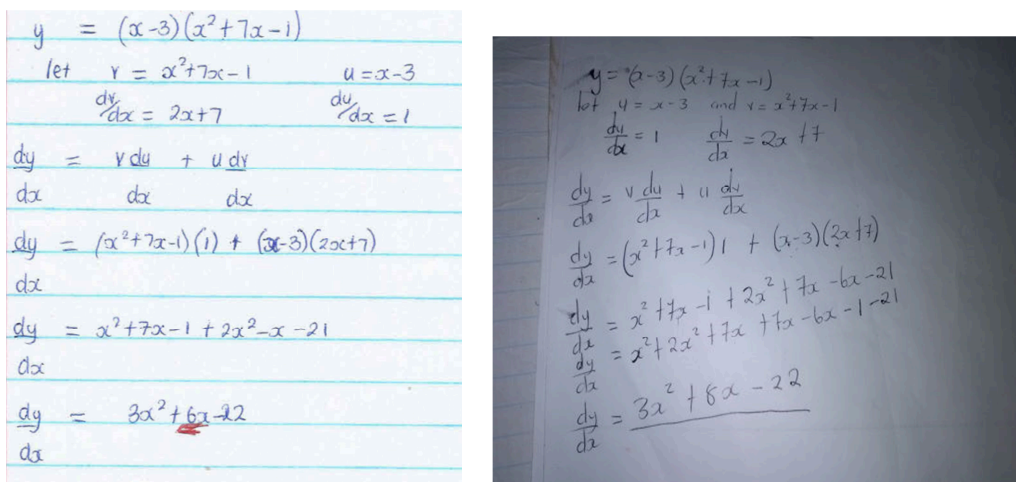 y = (x-3)(x²+7x-1)
let v = x²+7x-1 u = x-3
dv/dx = 2x+7 du/dx = 1
dy/dx = v du/dx + u dv/dx
dy/dx = (x²+7x-1)(1) + (x-3)(2x+7)
dy/dx = x²+7x-1 + 2x²-x-21
dy/dx = 3x²+6x-22
y = (x-3)(x²+7x-1)
let u = x-3 and v = x²+7x-1
du/dx = 1 dv/dx = 2x+7
dy/dx = v du/dx + u dv/dx
dy/dx = (x²+7x-1)1 + (x-3)(2x+7)
dy/dx = x²+7x-1+2x²+7x-6x-21
dy/dx = x²+2x²+7x+7x-6x-1-21
dy/dx = 3x²+8x-22